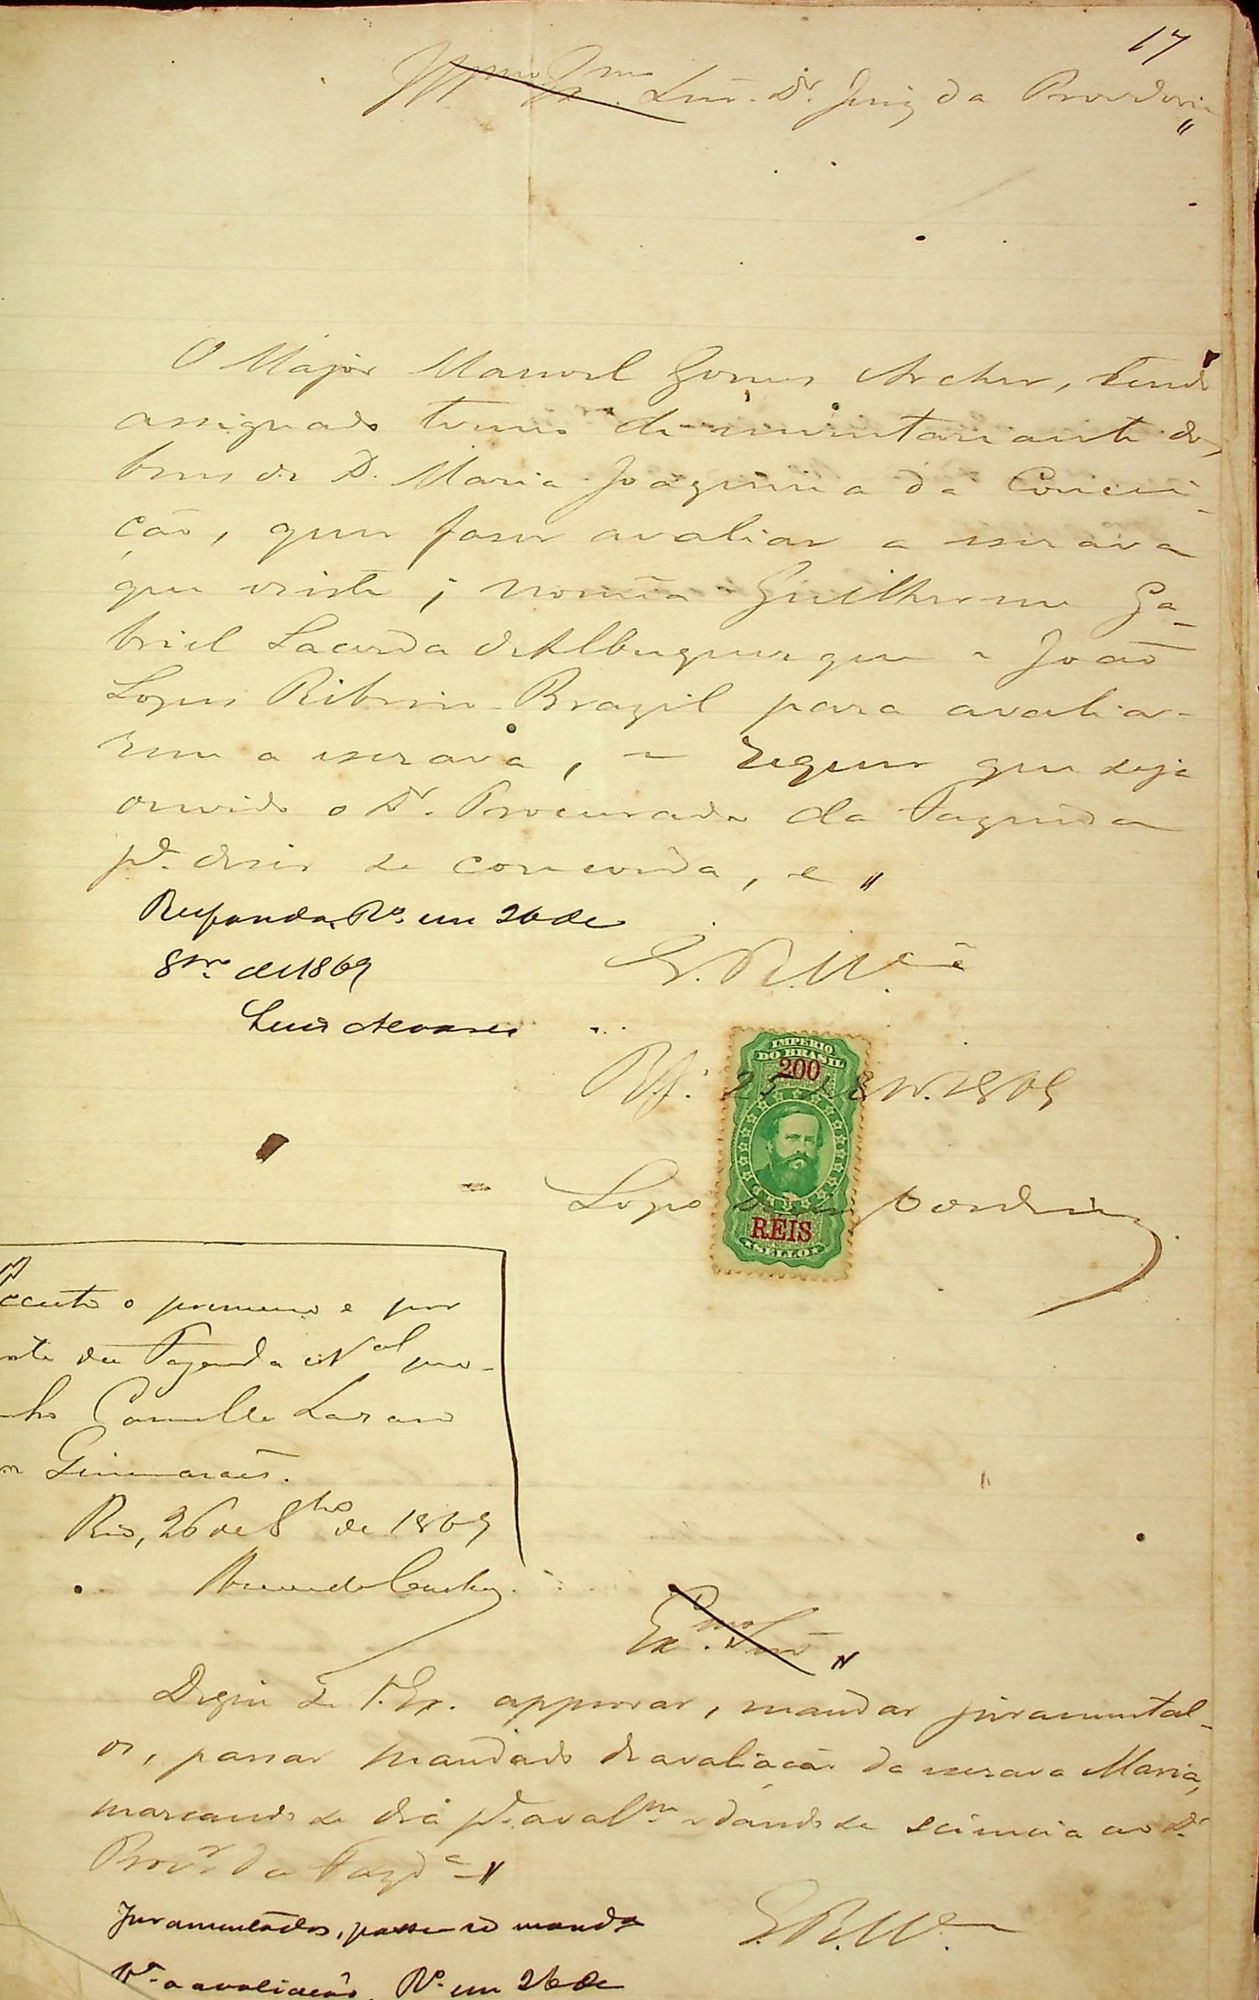 17
Illmo Exmo Snr. Dr. Juiz da Provedoria
O Major Manoel Gomes Archer, tendo
assignado termo de inventariante dos
bens de D. Maria Joaquina da Concei-
ção, quer faser avaliar a escrava
que existe; noméa Guilherme Ga-
briel Lacerda de Albuquerque e João
Lopes Ribeiro Brazil para avalia-
rem a escrava, e requer que seja
ouvido o Dr. Procurador da Fazenda
pa. diser se concorda, e
Responda. Ro. em 26 de
8bro de 1869
E. R. Mcê
Luiz Alvares
IMPERIO
DO BRASIL
200
25 de 8bro. 1869
Lopo Cordeiro
REIS
SELLO
o primeiro e por
da Fazenda Nal pro-
Camillo
Guimarães.
Rio, 26 de 8bro de 1869
Exmo. Snr
Digne se V. Ex. approvar, mandar juramental-
os, passar mandado de avaliação da escrava Maria,
marcando se dia pa. avalm. e dando se sciencia ao Dr.
Procr da Fazda
Juramentados, passe-se manda
E. R. Mce
a avaliação, Ro. em 26 de